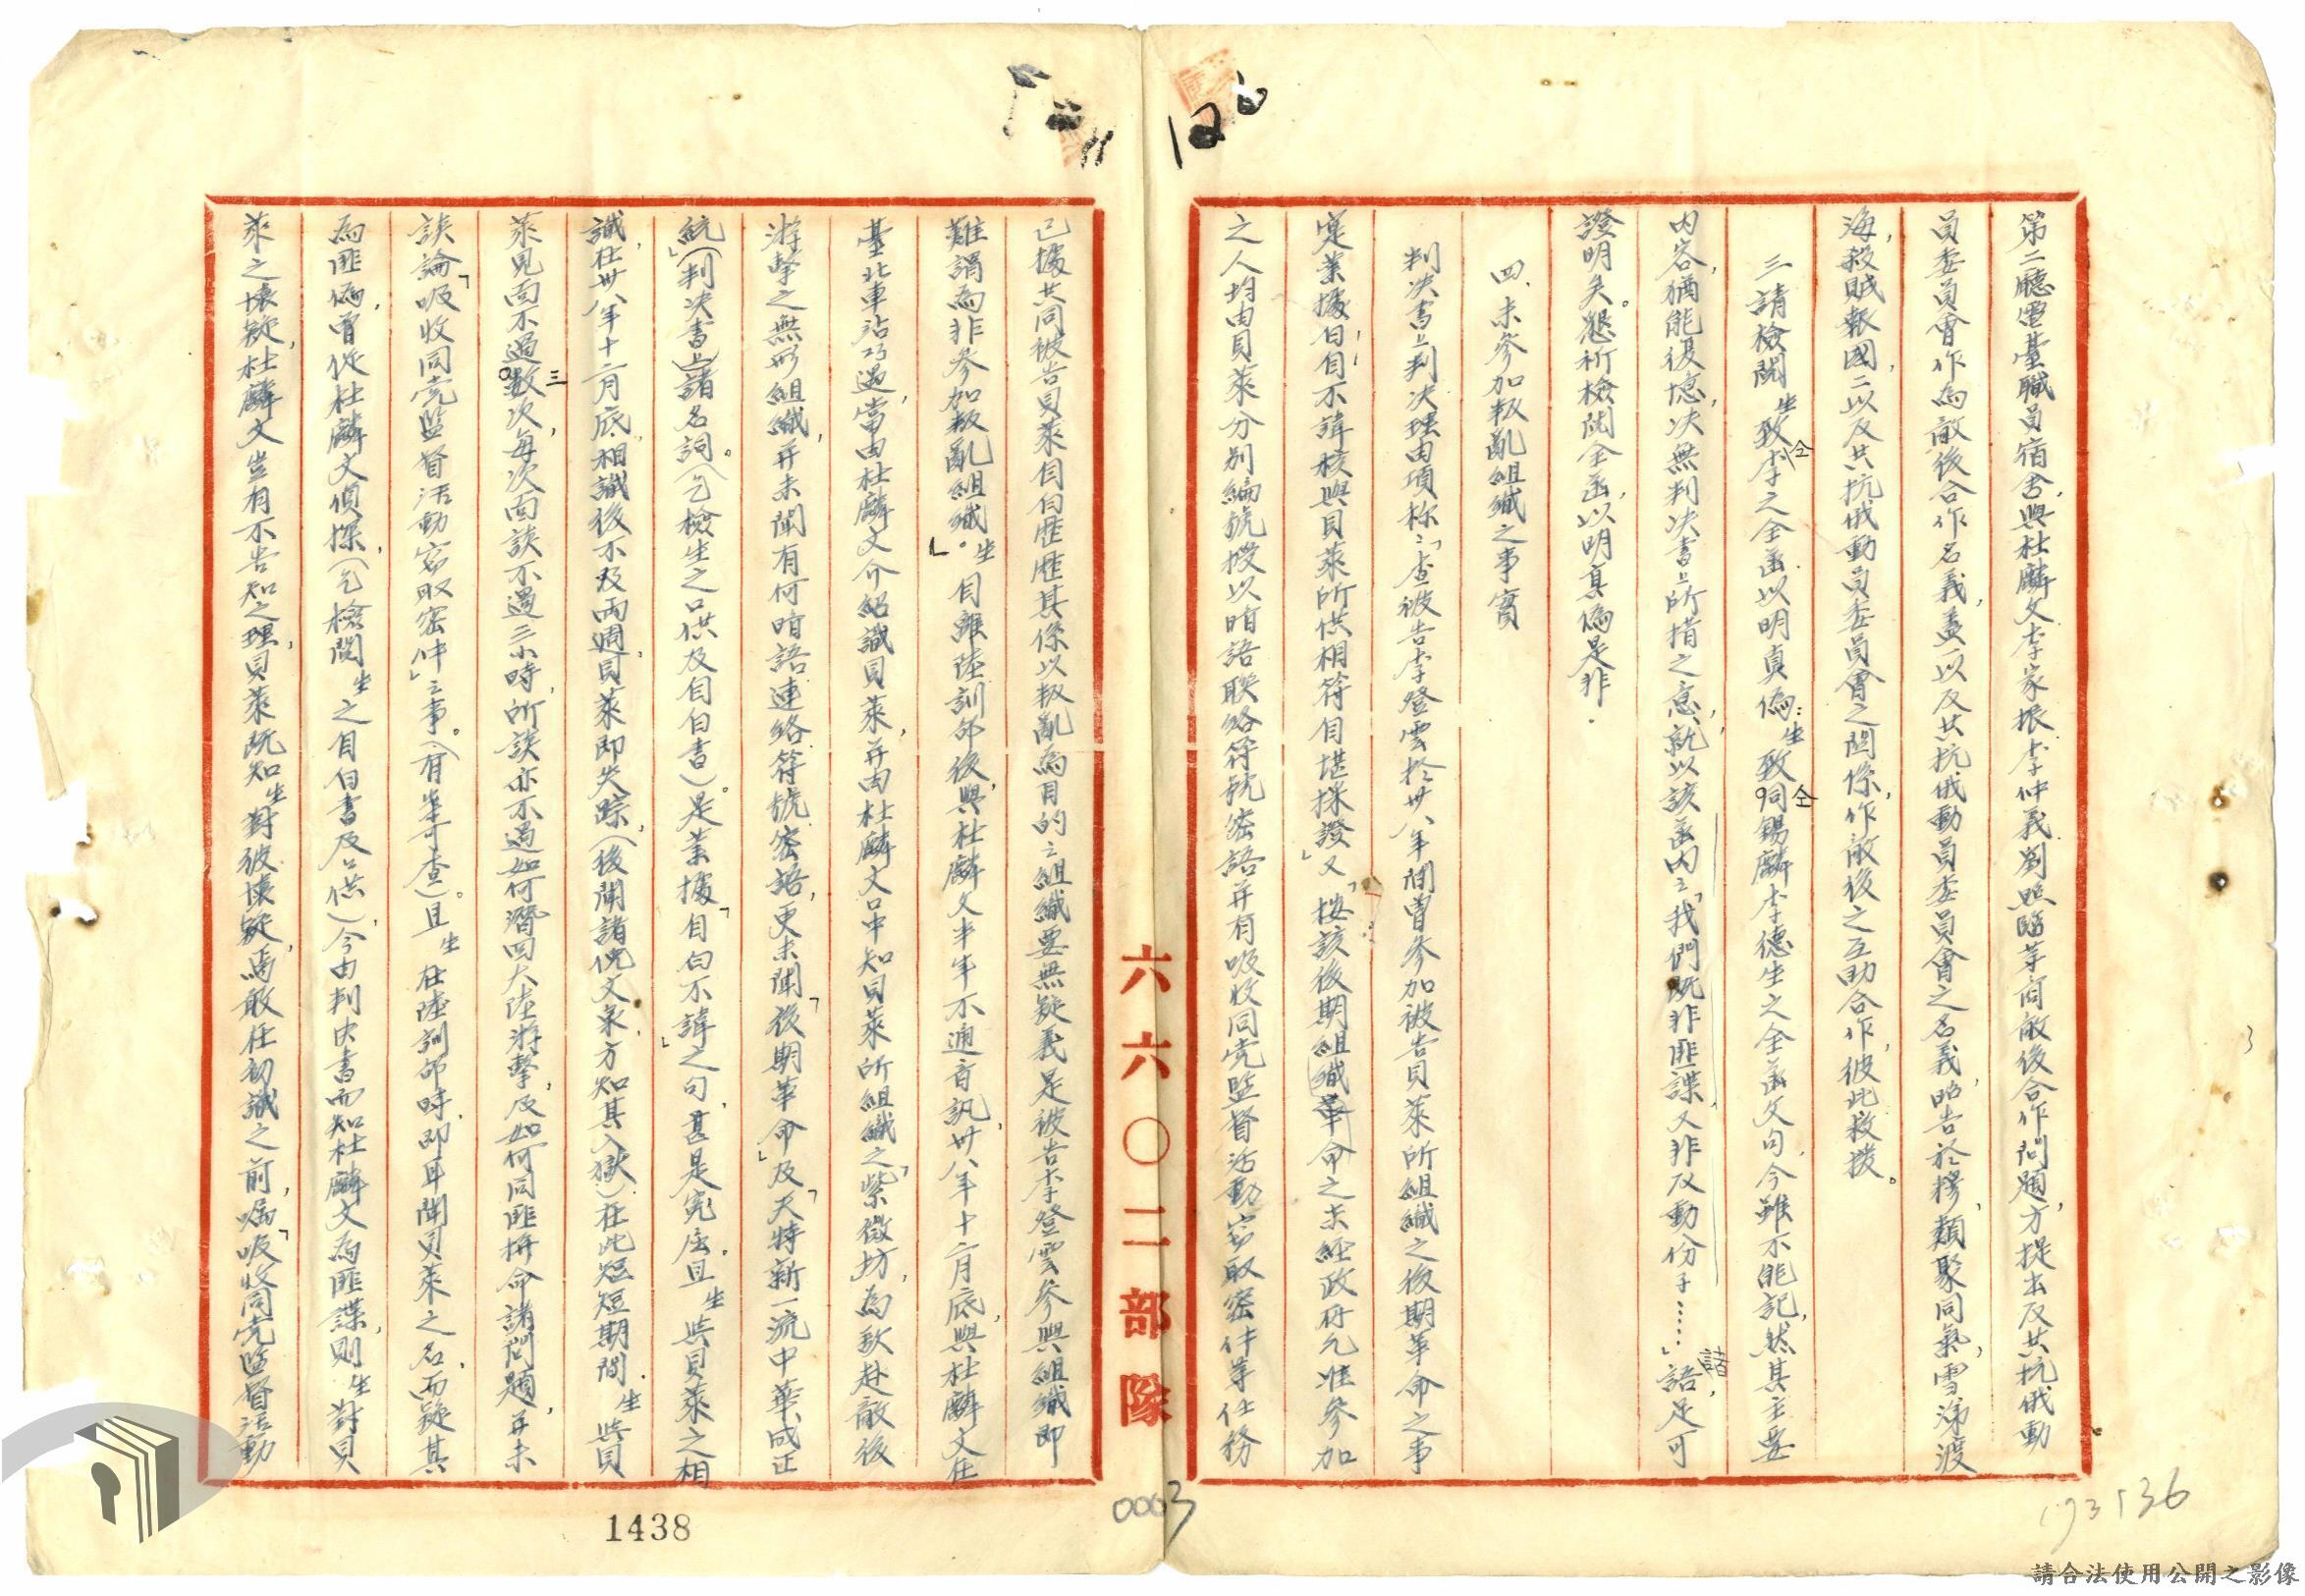 第二廳電臺職員宿舍,與杜麟文李家振李仲義劉照臨等商敵後合作問題,方提出反共抗俄動
員委員會作為敵後合作名義,蓋一以反共抗俄動員委員會之名義,昭告於穆,類聚同氣,雪涕渡
海,殺賊報國,二以反共抗俄動員委員會之關係,作敵後之互助合作,彼此救援。
三請檢閱生致李仝之全函以明真偽:生致仝伺錫麟李德生之全函文句,今雖不能記,然其主要
內容,猶能復憶,決無判決書上所指之意,就以該函內之「我們既非匪諜,又非反動份子……」諸語,足可
證明矣。懇祈檢閱全函,以明真偽是非.
四、未參加叛亂組織之事實
判決書上判決理由項称:「查被告李登雲於卅八年間曾參加被告貝萊所組織之後期革命之事
寔業據,自白不諱核與貝萊所供相符自堪採證」又「按該後期組織革命之未經政府允准參加
之人均由貝萊分別編號授以暗語联絡符號密語并有吸收同党監督活動窃取密件等任務
已據共同被告貝萊自白歷歷其係以叛亂為目的之組織要無疑義是被告李登雲參與組織即
難謂為非參加叛亂組織.」生自離陸訓部後,與杜麟文半年不通音訊,卅八年十一月底,與杜麟文在
臺北車站巧遇,當由杜麟文介紹識貝萊,并由杜麟文口中知貝萊所組織之「紫微坊」為致赴敵後
游擊之無形組織,并未聞有何暗語連絡符號密語,更未聞「後期革命」及「天特新一流中華成正
統」(判決書上)諸名詞。(乞檢生之口供及自白書)。是業據「自白不諱」之句,甚是寃屈.且生與貝萊之相
識,在卅八年十二月底,相識後不及兩週,貝萊即失踪,(後聞諸倪文泉,方知其入獄)在此短短期間.生與貝
萊見面不過数三次,每次面談不過三小時,所談亦不過如何潛回大陸游擊,及如何同匪拚命諸問題,并未
談論「吸收同党監督活動窃取密件」之事。(有案可查)。且生在陸訓部時,即耳聞貝萊之名,而疑其
為匪偽,曾促杜麟文偵探,(乞檢閱生之自白書及口供)今由判決書而知杜麟文為匪諜,則生對貝
萊之懷疑,杜麟文豈有不告知之理,貝萊既知生對彼懷疑,焉敢在初識之前,囑「吸收同党監督活動
六六〇二部隊
1438
0063
173136
請合法使用公開之影像